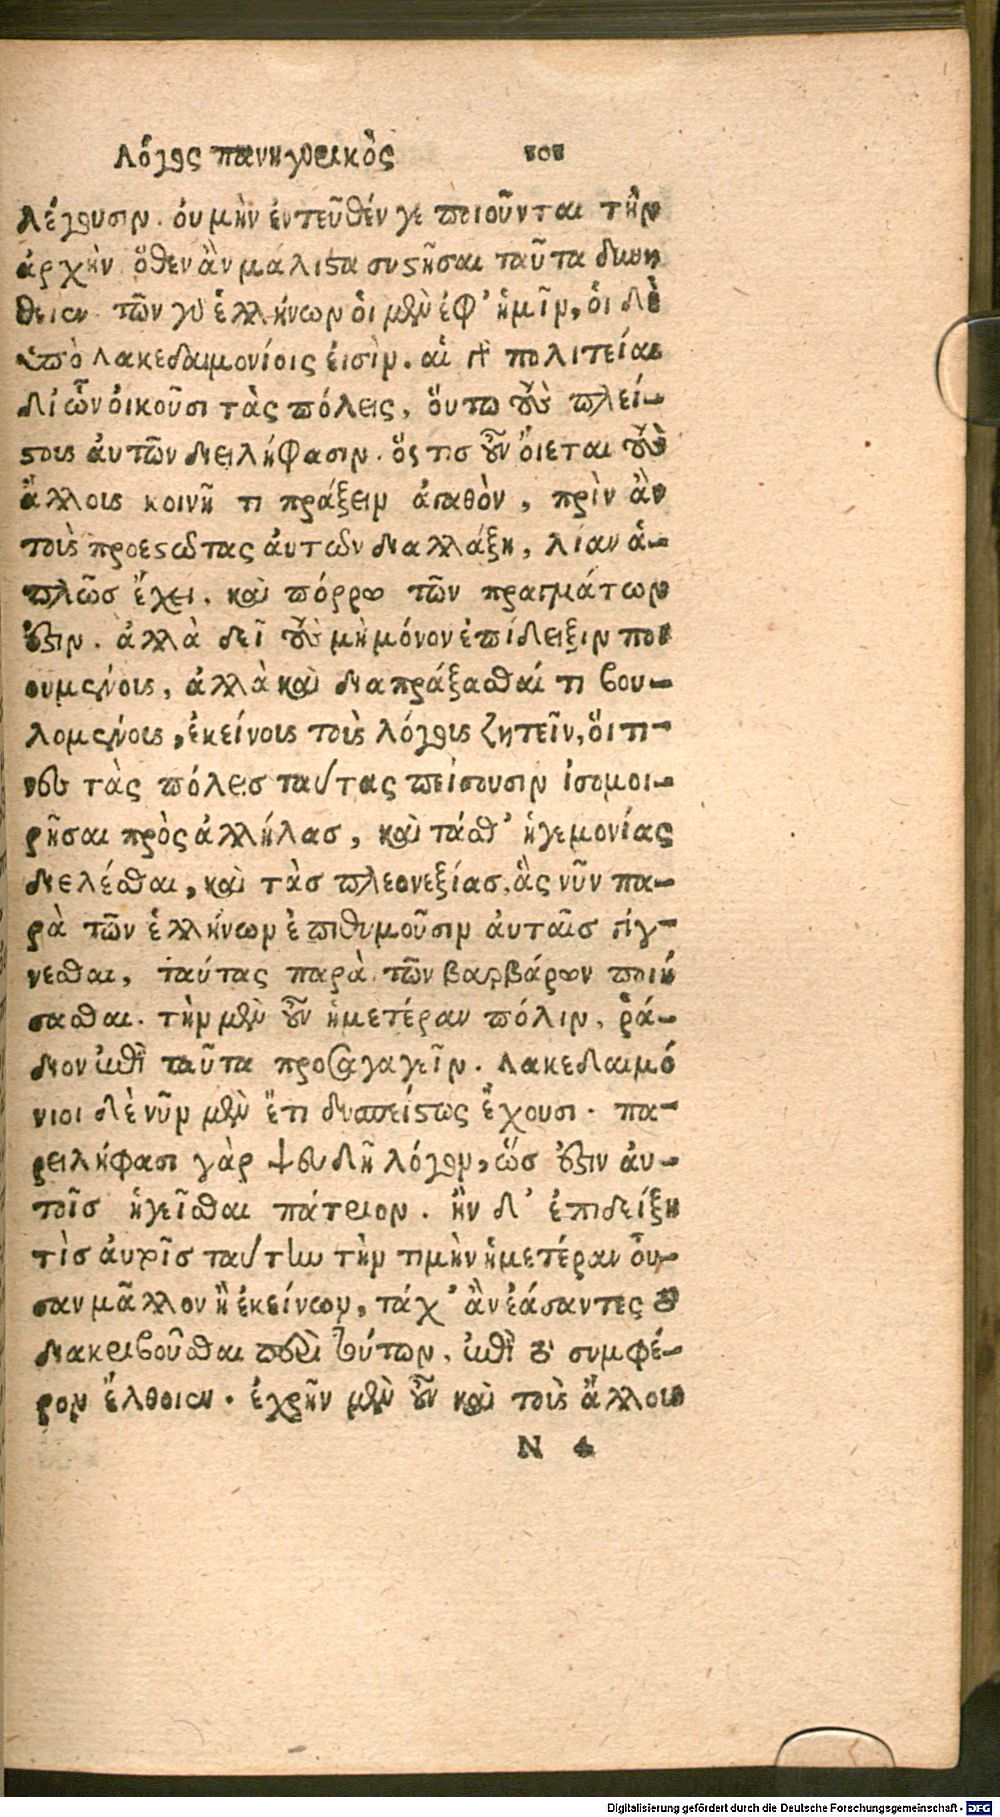 Λόγος πανηγυρικὸς 101
λέγουσιν. ὀυ μὴν ἐντεῦθέν γε ποιοῦνται τὴν
ἀρχὴν ὅθεν ἂν μάλιστα συστῆσαι ταῦτα δυνη
θειεν τῶν γὸ ἑλλήνων ὁι μὲν ἐφ' ἡμῖν, ὁι δὲ
ὑπὸ λακεδαιμονίοις ἐισὶν. αἱ γὸ πολιτείαι
δἰ ὧν ὀικοῦσι τὰς πόλεις, ὅυτω τοὺς πλεί-
στους ἀυτῶν διειλήφασιν. ὅς τισ οὖν ὄιεται τοὺς
ἄλλους κοινῆ τι πράξειν ἀγαθὸν, πρὶν ἂν
τοὺς προεστῶτας ἀυτῶν διαλλάξη, λίαν ἁ-
πλῶσ ἔχει. καὶ πόρρω τῶν πραγμάτων
ἐστιν. ἀλλὰ δεῖ τοὺς μὴ μόνον ἐπίδειξιν ποι
ουμένους, ἀλλὰ καὶ διαπράξασθαί τι βου-
λομένους, ἐκείνους τοὺς λόγους ζητεῖν, ὅιτι-
νες τὰς πόλεισ ταύτας πείσουσιν ἰσομοι-
ρῆσαι πρὸς ἀλλήλασ, καὶ τάσθ' ἡγεμονίας
διελέσθαι, καὶ τὰσ πλεονεξίασ, ἃς νῦν πα-
ρὰ τῶν ἑλλήνων ἐπιθυμοῦσιν ἀυταῖσ γίγ-
νεσθαι, ταύτας παρὰ τῶν βαρβάρων ποιή
σασθαι. τὴν μὲν οὖν ἡμετέραν πόλιν, ῥά-
διον ἐπὶ ταῦτα προσαγαγεῖν. λακεδαιμό
νιοι δὲ νῦν μὲν ἔτι δυσπείστως ἔχουσι. πα-
ρειλήφασι γὰρ ψευδῆ λόγον, ὥσ ἔστιν ἀυ-
τοῖσ ἡγεῖσθαι πάτριον. ἢν δ' ἐπιδείξη
τὶσ ἀυτοῖσ ταύτην τὴν τιμὴν ἡμετέραν ὀυ-
σαν μᾶλλον ἢ ἐκείνων, τάχ' ἂν ἐάσαντες τὸ
διακριβοῦσθαι περὶ τούτων, ἐπὶ τὸ συμφέ-
ρον ἔλθοιεν. ἐχρῆν μὲν οὖν καὶ τοὺς ἄλλους
N 4
Digitalisierung gefördert durch die Deutsche Forschungsgemeinschaft - DFG